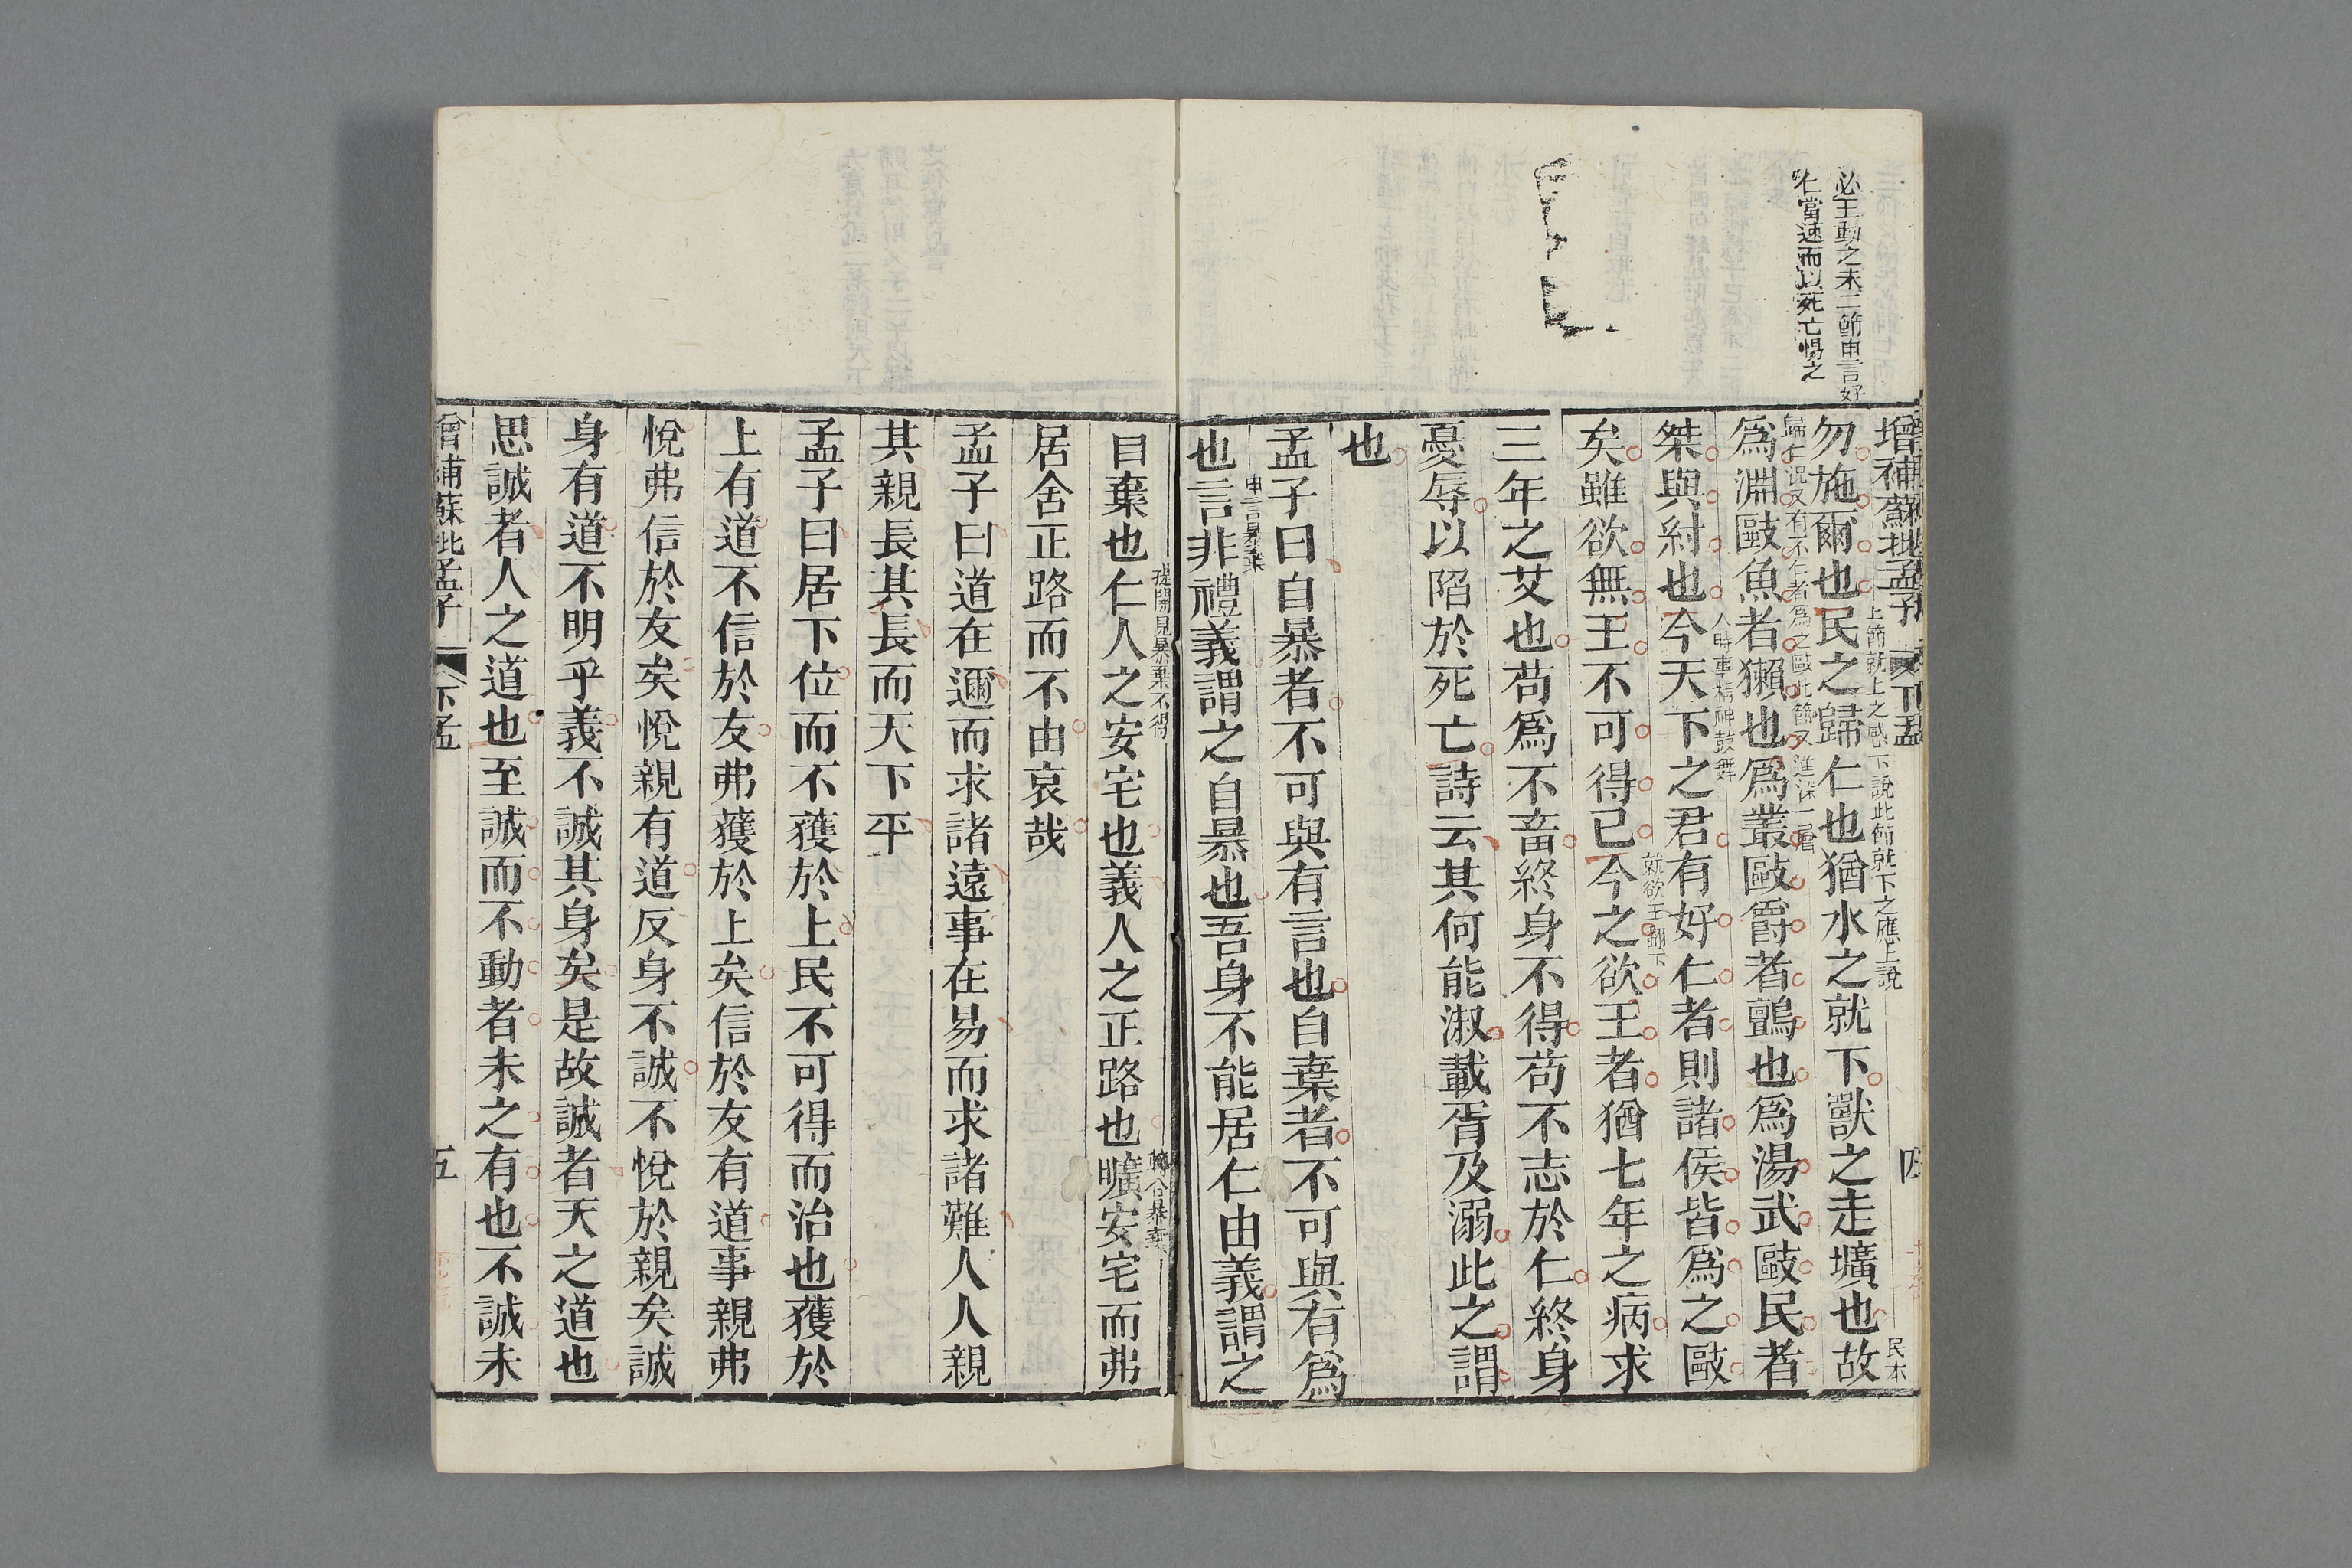 必王動之末二節申言好
仁當速而以死亡惕之
增補蘇批孟子
下孟
四
民本
勿施爾也民之歸仁也猶水之就下獸之走壙也故
上節就上之感下說此節就下之應上說
爲淵敺魚者獺也爲叢敺爵者鸇也爲湯武敺民者
歸仁況又有不仁者爲之敺此節又進深一層
桀與紂也今天下之君有好仁者則諸侯皆爲之敺
入時事精神鼓舞
矣雖欲無王不可得已今之欲王者猶七年之病求
就欲王翻下
三年之艾也苟爲不畜終身不得苟不志於仁終身
憂辱以陷於死亡詩云其何能淑載胥及溺此之謂
也
孟子曰自暴者不可與有言也自棄者不可與有爲
也言非禮義謂之自暴也吾身不能居仁由義謂之
申言暴棄
自棄也仁人之安宅也義人之正路也曠安宅而弗
提開見暴棄不得
轉合暴棄
居舍正路而不由哀哉
孟子曰道在邇而求諸遠事在易而求諸難人人親
其親長其長而天下平
孟子曰居下位而不獲於上民不可得而治也獲於
上有道不信於友弗獲於上矣信於友有道事親弗
悅弗信於友矣悅親有道反身不誠不悅於親矣誠
身有道不明乎義不誠其身矣是故誠者天之道也
思誠者人之道也至誠而不動者未之有也不誠未
增補蘇批孟子
下孟
五